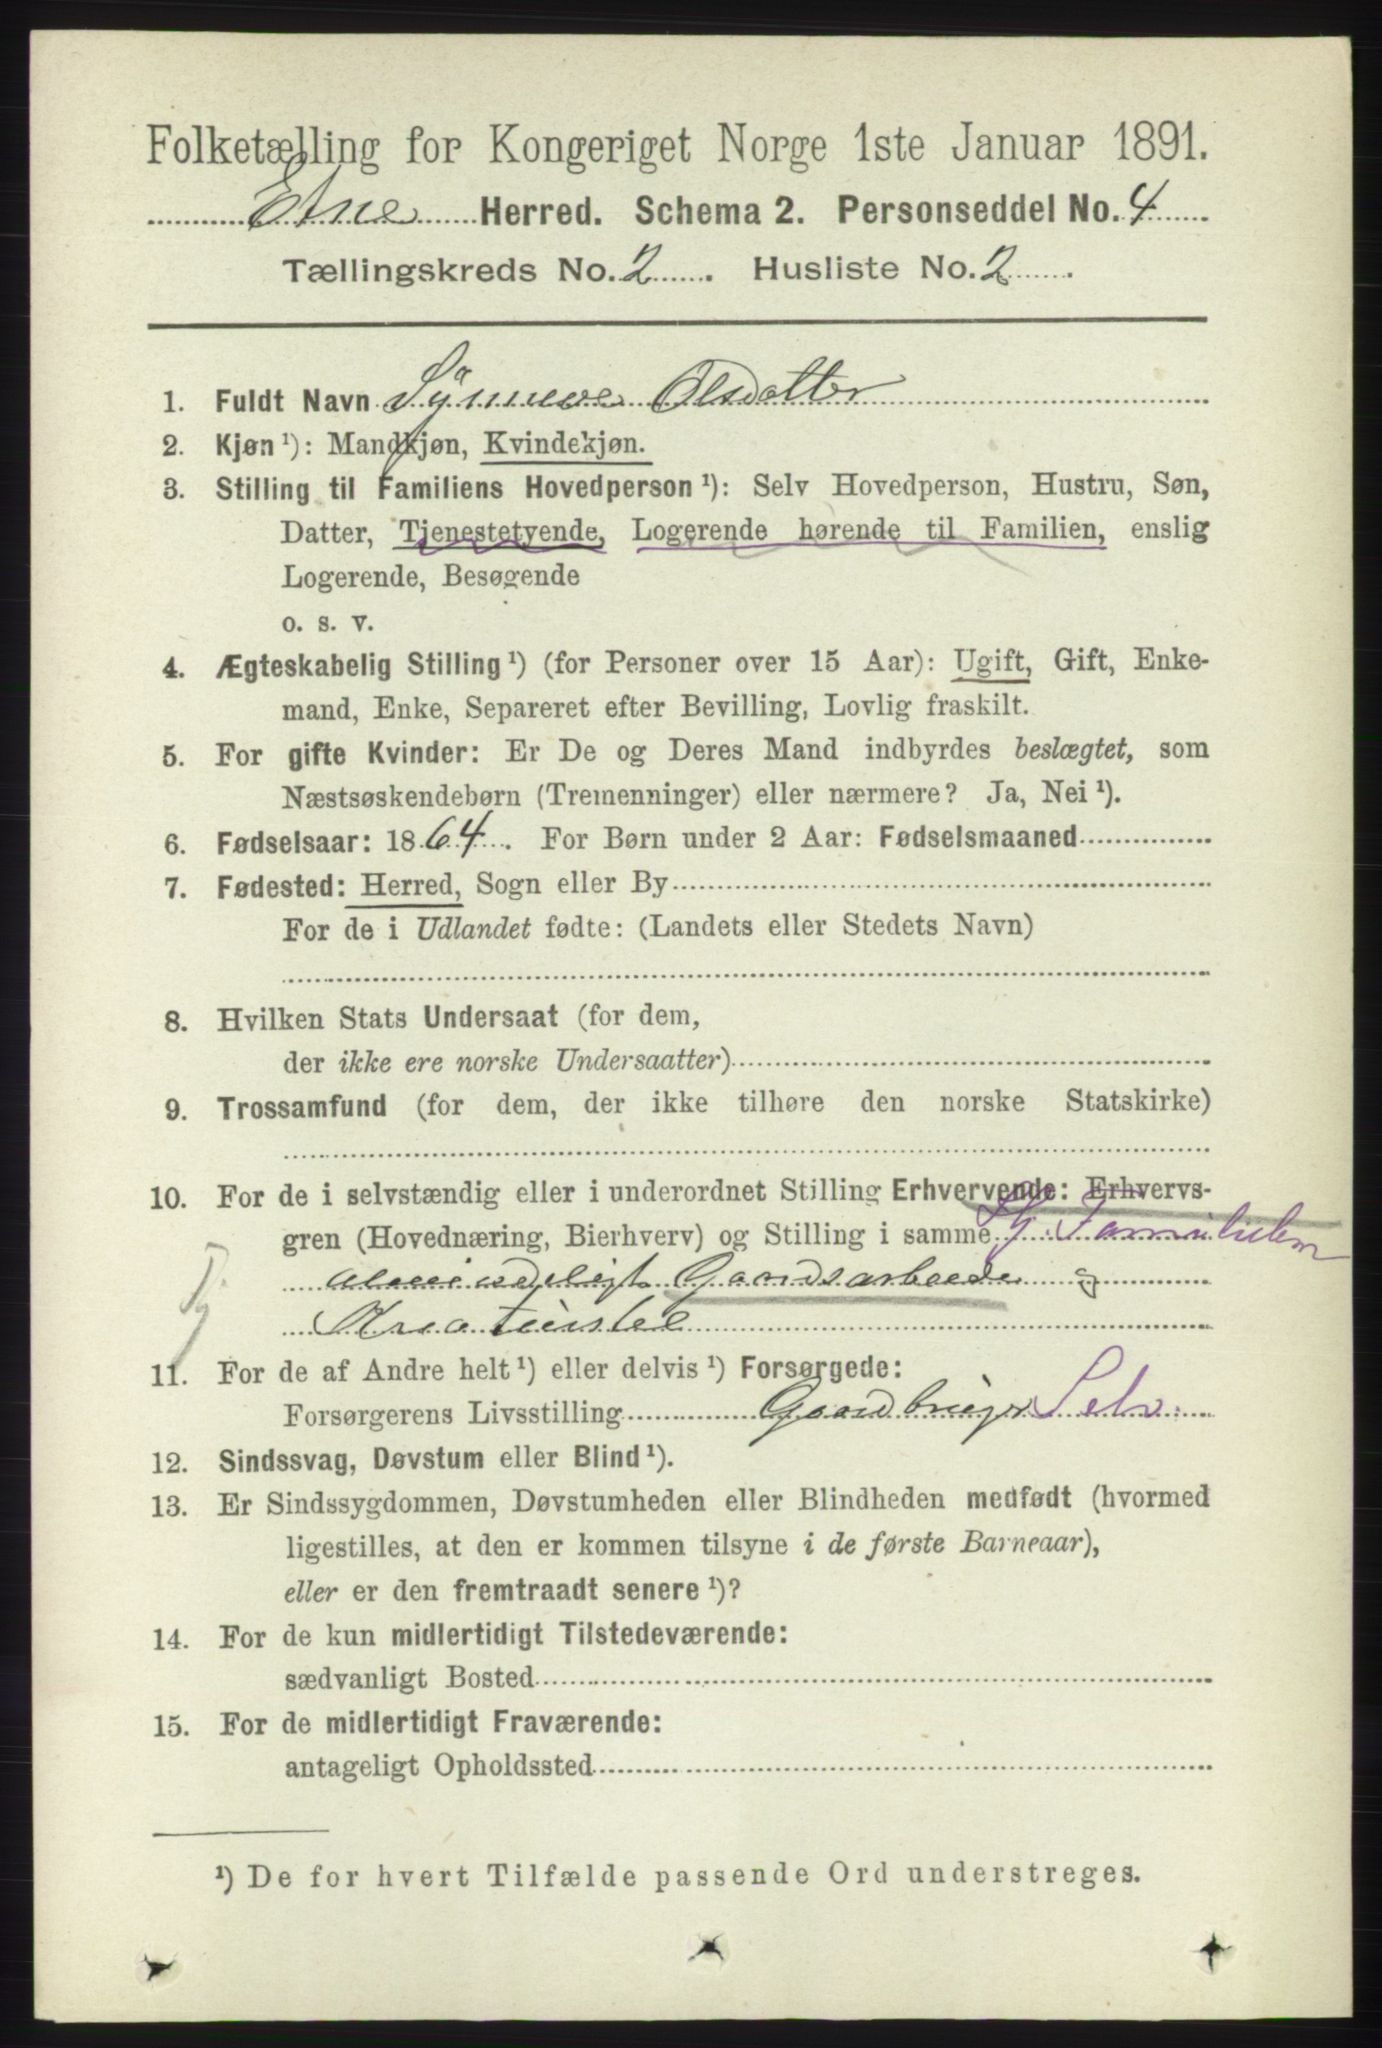 Folketælling for Kongeriget Norge 1ste Januar 1891.
Etne Herred. Schema 2. Personseddel No. 4
Tællingskreds No. 2. Husliste No. 2.
1. Fuldt Navn Synneve Olsdatter
2. Kjøn ¹): Mandkjøn, Kvindekjøn.
3. Stilling til Familiens Hovedperson ¹): Selv Hovedperson, Hustru, Søn,
Datter, Tjenestetyende, Logerende hørende til Familien, enslig
Logerende, Besøgende
o. s. v.
4. Ægteskabelig Stilling ¹) (for Personer over 15 Aar): Ugift, Gift, Enke-
mand, Enke, Separeret efter Bevilling, Lovlig fraskilt.
5. For gifte Kvinder: Er De og Deres Mand indbyrdes beslægtet, som
Næstsøskendebørn (Tremenninger) eller nærmere? Ja, Nei ¹).
6. Fødselsaar: 1864. For Børn under 2 Aar: Fødselsmaaned
7. Fødested: Herred, Sogn eller By
For de i Udlandet fødte: (Landets eller Stedets Navn)
8. Hvilken Stats Undersaat (for dem,
der ikke ere norske Undersaatter)
9. Trossamfund (for dem, der ikke tilhøre den norske Statskirke)
10. For de i selvstændig eller i underordnet Stilling Erhvervende: Erhvervs-
gren (Hovednæring, Bierhverv) og Stilling i samme Familielem
almindeligt Gaardsarbeide og
Tj. Kreaturstel
11. For de af Andre helt ¹) eller delvis ¹) Forsørgede:
Forsørgerens Livsstilling Gaardbruger Selv.
12. Sindssvag, Døvstum eller Blind ¹).
13. Er Sindssygdommen, Døvstumheden eller Blindheden medfødt (hvormed
ligestilles, at den er kommen tilsyne i de første Barneaar),
eller er den fremtraadt senere ¹)?
14. For de kun midlertidigt Tilstedeværende:
sædvanligt Bosted
15. For de midlertidigt Fraværende:
antageligt Opholdssted
¹) De for hvert Tilfælde passende Ord understreges.